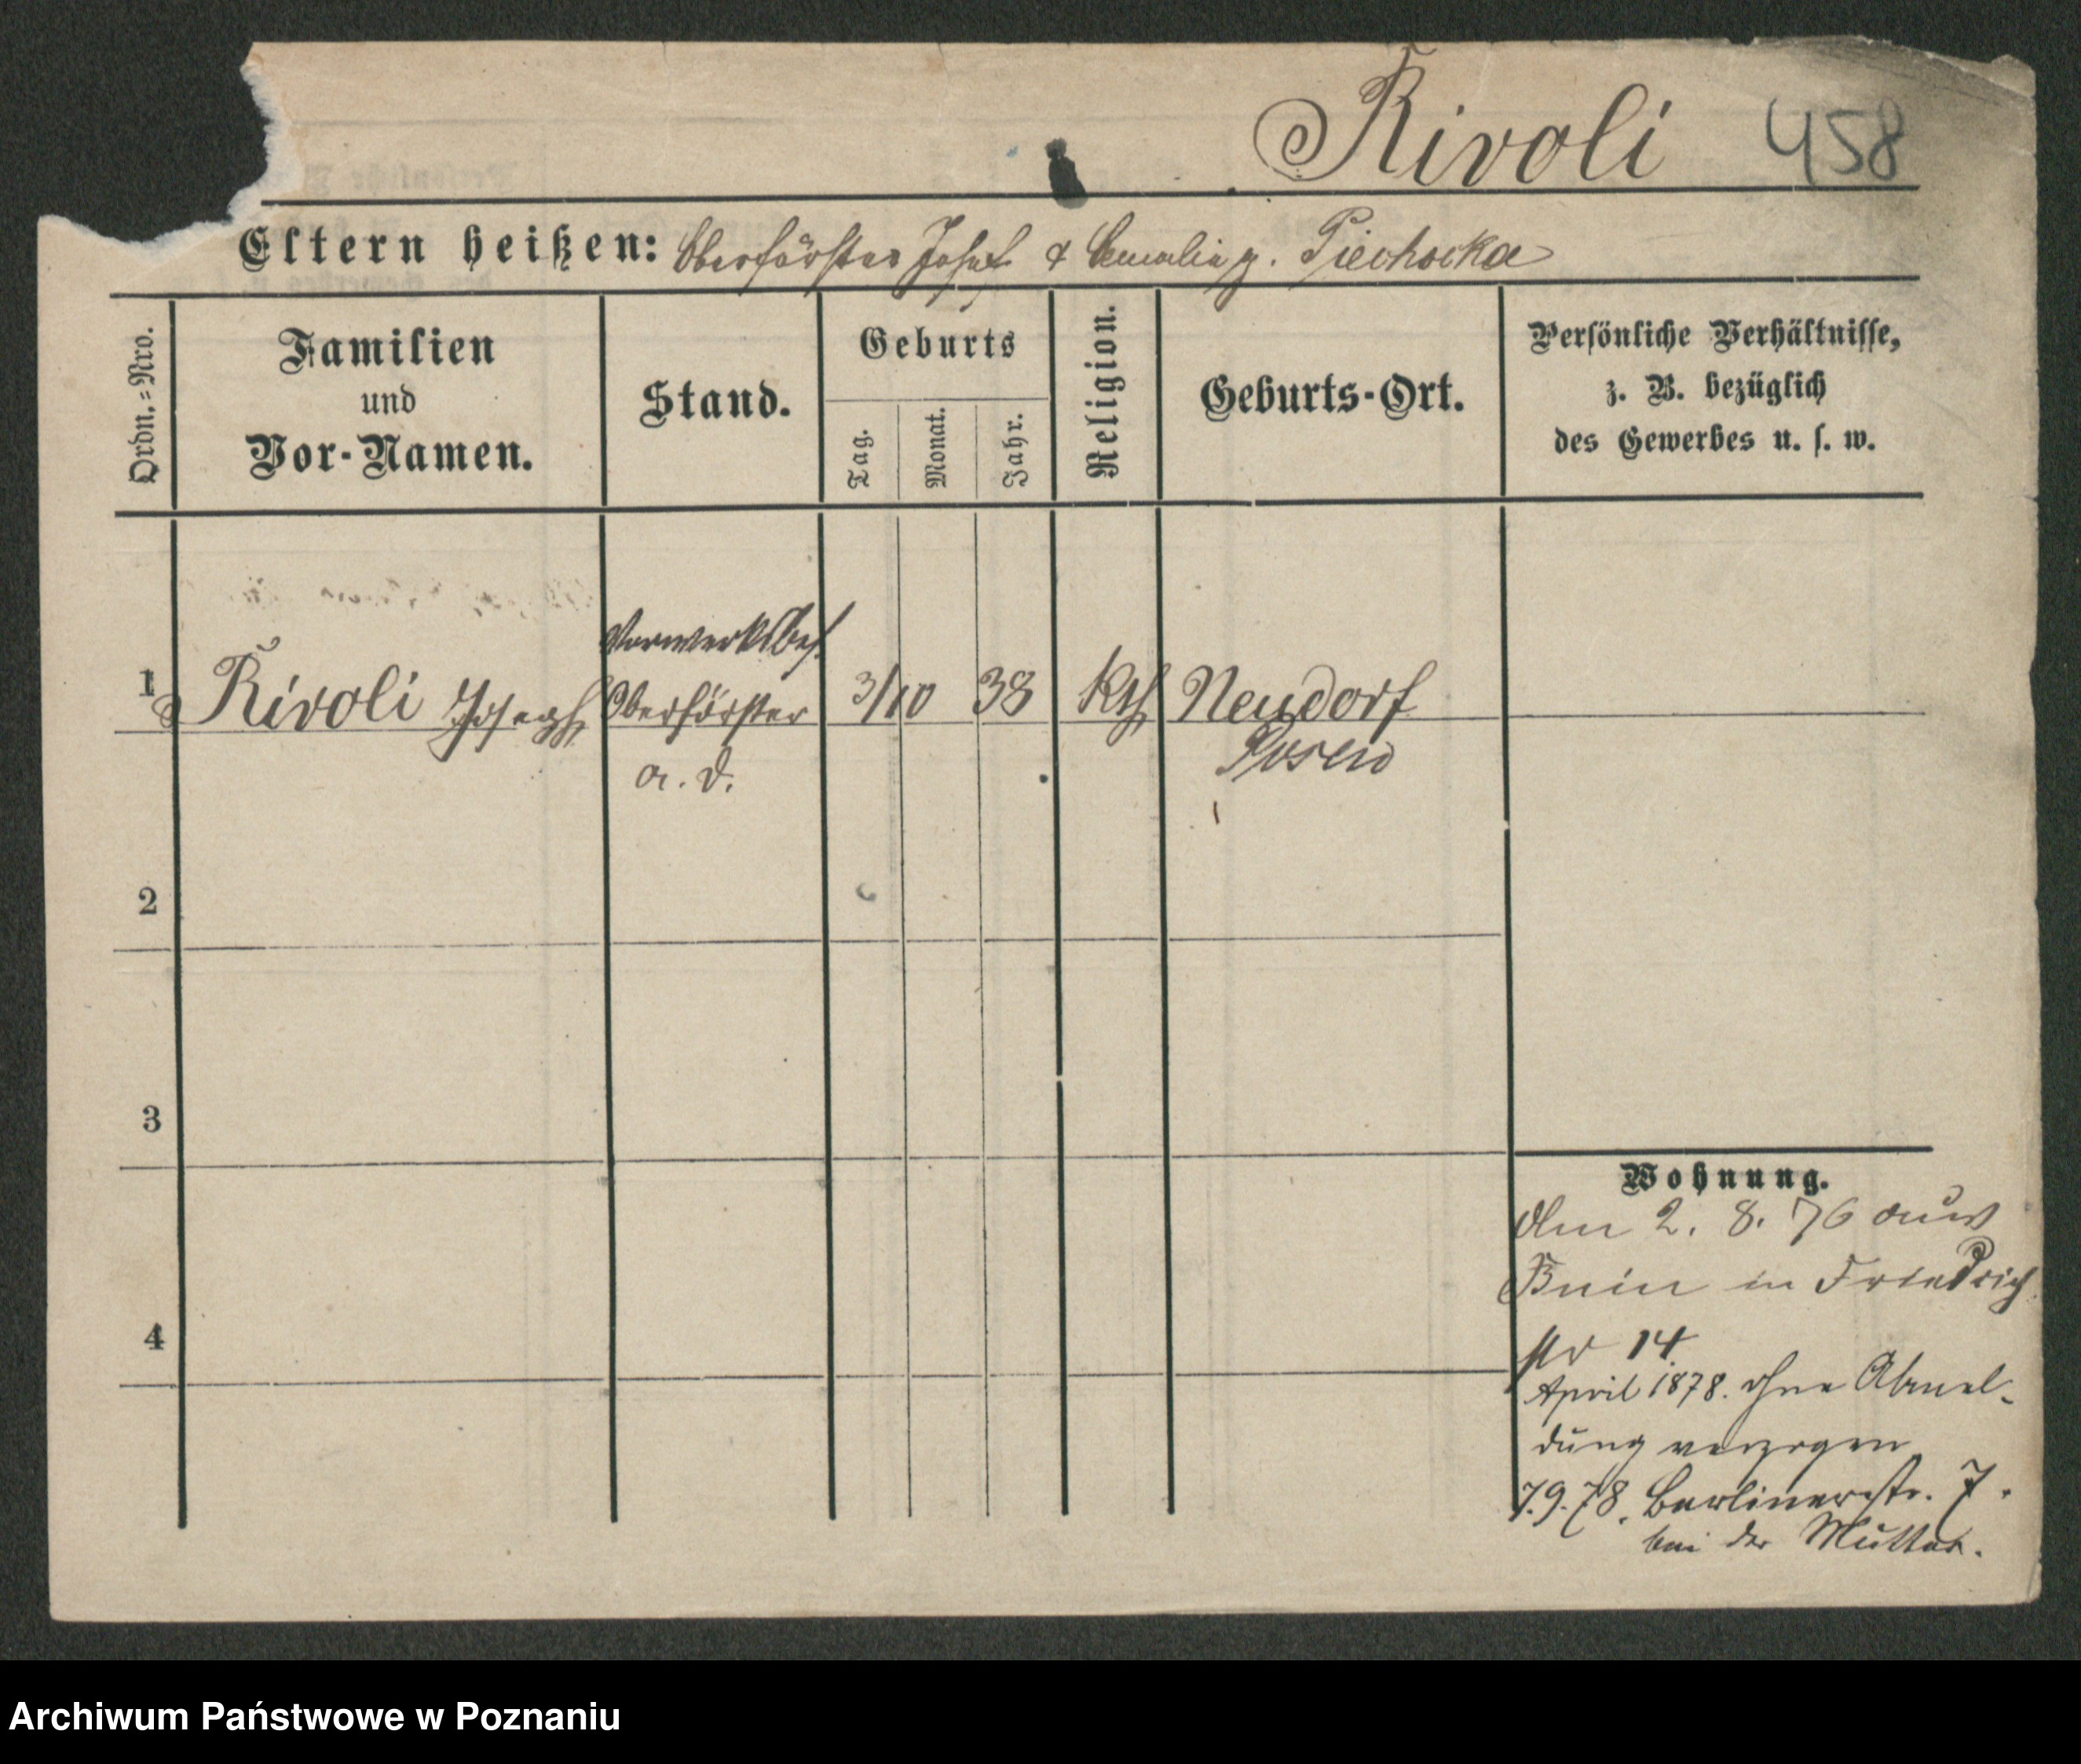 Rivoli 458
Eltern heißen: Oberförster Josef & g. Piechocka
Ordn.=Nro.
Familien
und
Vor-Namen.
Stand.
Geburts
Tag.
Monat.
Jahr.
Religion.
Geburts-Ort.
Persönliche Verhältnisse,
z. B. bezüglich
des Gewerbes u. s. w.
Vorwerksbes.
1 Rivoli Joseph Oberförster 3/10 38 Kth Neudorf
a. D. Posen
2
3
4
Wohnung.
Am 2. 8. 76 aus
Bnin in Friedrich
str 14
April 1878. ohne Abmel-
dung verzogen
7.9.78. Berlinerstr. 7.
bei der Mutter.
Archiwum Państwowe w Poznaniu